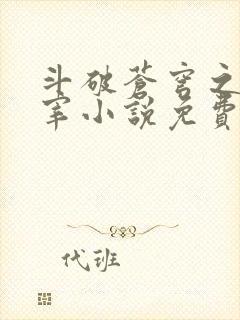 斗破蒼穹之
宰小說免費
代班